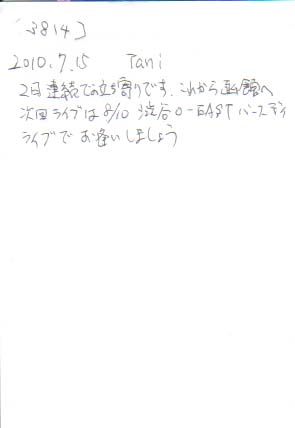 [3814]
2010.7.15 Tani
2日連続での立ち寄りです。これから函館へ
次回ライブは8/10 渋谷O-EAST バースディ
ライブでお逢いしましょう